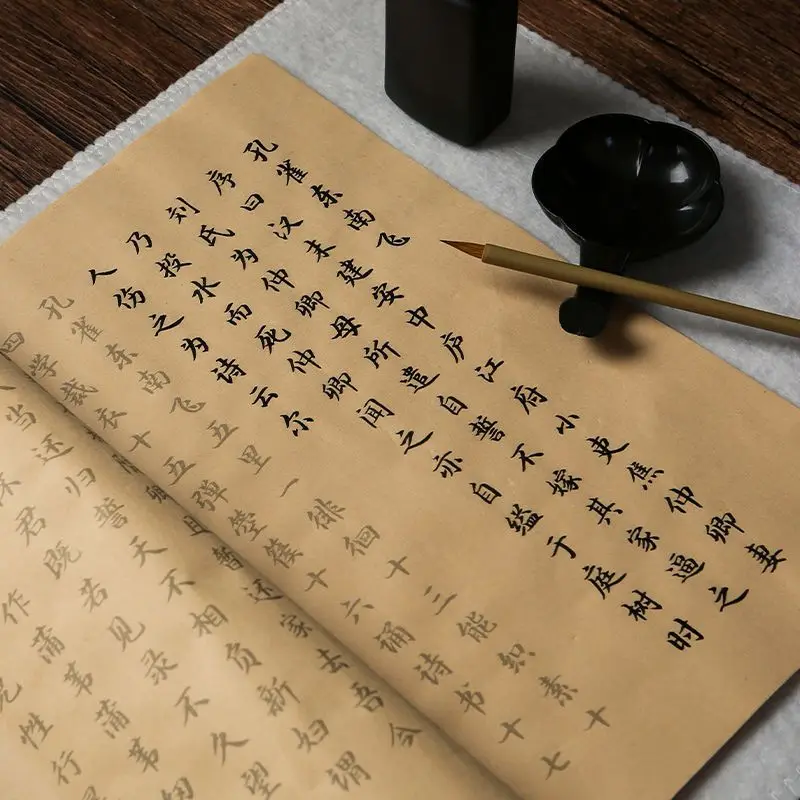 孔雀东南飞
序曰汉末建安中庐江府小吏焦仲卿妻
刘氏为仲卿母所遣自誓不嫁其家逼之
乃投水而死仲卿闻之亦自缢于庭树时
人伤之为诗云尔
孔雀东南飞五里一徘徊十三能织素十
四学裁衣十五弹箜篌十六诵诗书十七
卿且暂还家去吾今
当还归誓天不相负新妇谓
君既若见录不久望
作蒲苇蒲苇纫
性行